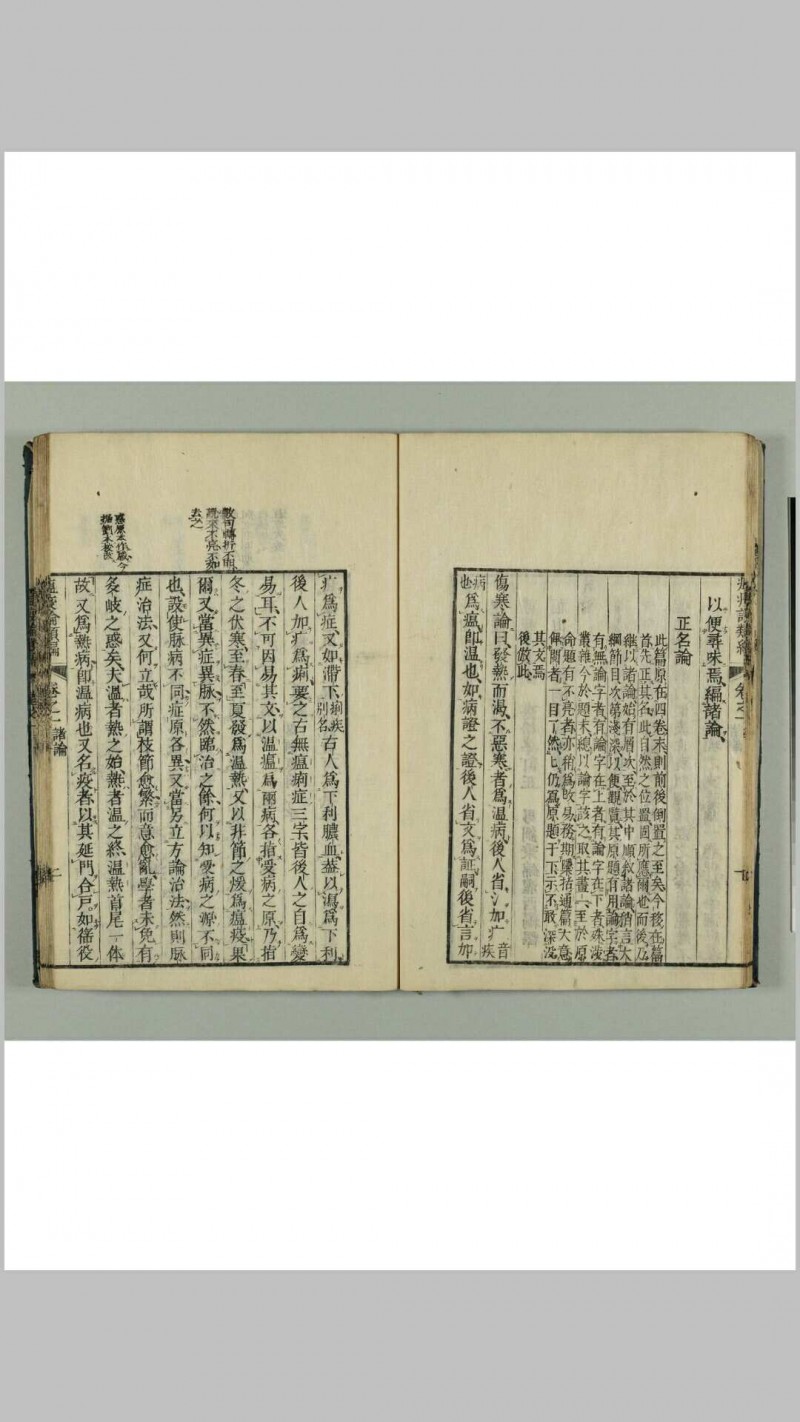 以便尋味焉編諸論
正名論
此篇原在四卷末則前後倒置之至矣今移在篇
首先正其名此自然之位置固所應爾也而後乃
継以諸論始有層次至於其中順叙諸論皆言大
綱節目次第淺深以便觀覽其原題有用論字者
有無論字者有論字在上者有論字在下者殊涉
叢雜今於題末緫以論字該之取其畫一至於原
命題有不亮者亦稍為改易務期檃括通篇大意
俾閱者一目了然也仍寫原題于下示不敢深沒
其文焉
後倣此
傷寒論曰發熱而渴不惡寒者為温病後人省氵加疒音疾
病也為瘟即温也如病證之證後人省文為証嗣後省言加
疒為症又如滯下痢疾別名古人為下利膿血葢以瀉為下利
後人加疒為痢要之古無瘟痢症三字皆後人之自為變
易耳不可因易其文以温瘟為兩病各指受病之原乃指
冬之伏寒至春至夏發為温熱又以非節之煖為瘟疫果
爾又當異症異脉不然臨治之際何以知受病之源不同
也設使脉病不同症原各異又當另立方論治法然則脉
症治法又何立哉所謂枝節愈繁而意愈亂學者未免有
多岐之惑矣夫温者熱之始熱者温之終温熱首尾一体
故又為熱病即温病也又名疫者以其延門合戸如徭役
瘟疫論類編 卷之一 諸論 二